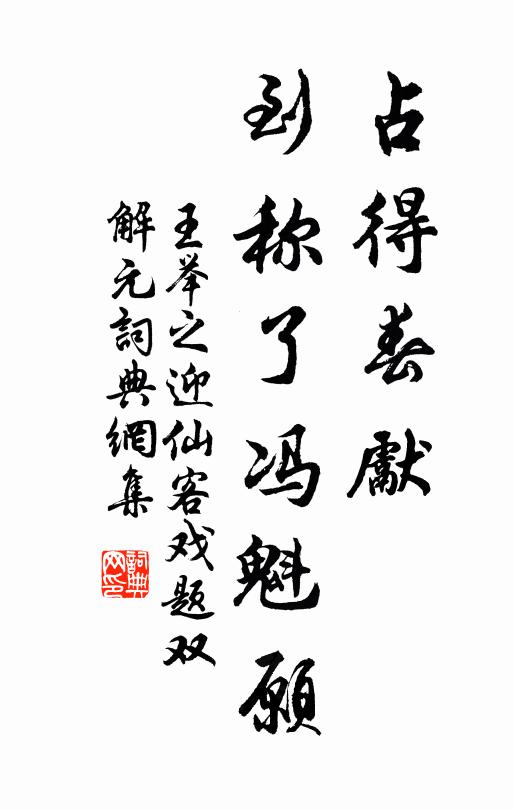 占得春獻
到称了冯魁願
王举之迎仙客戏题双
解元詞典網集
詞典网印